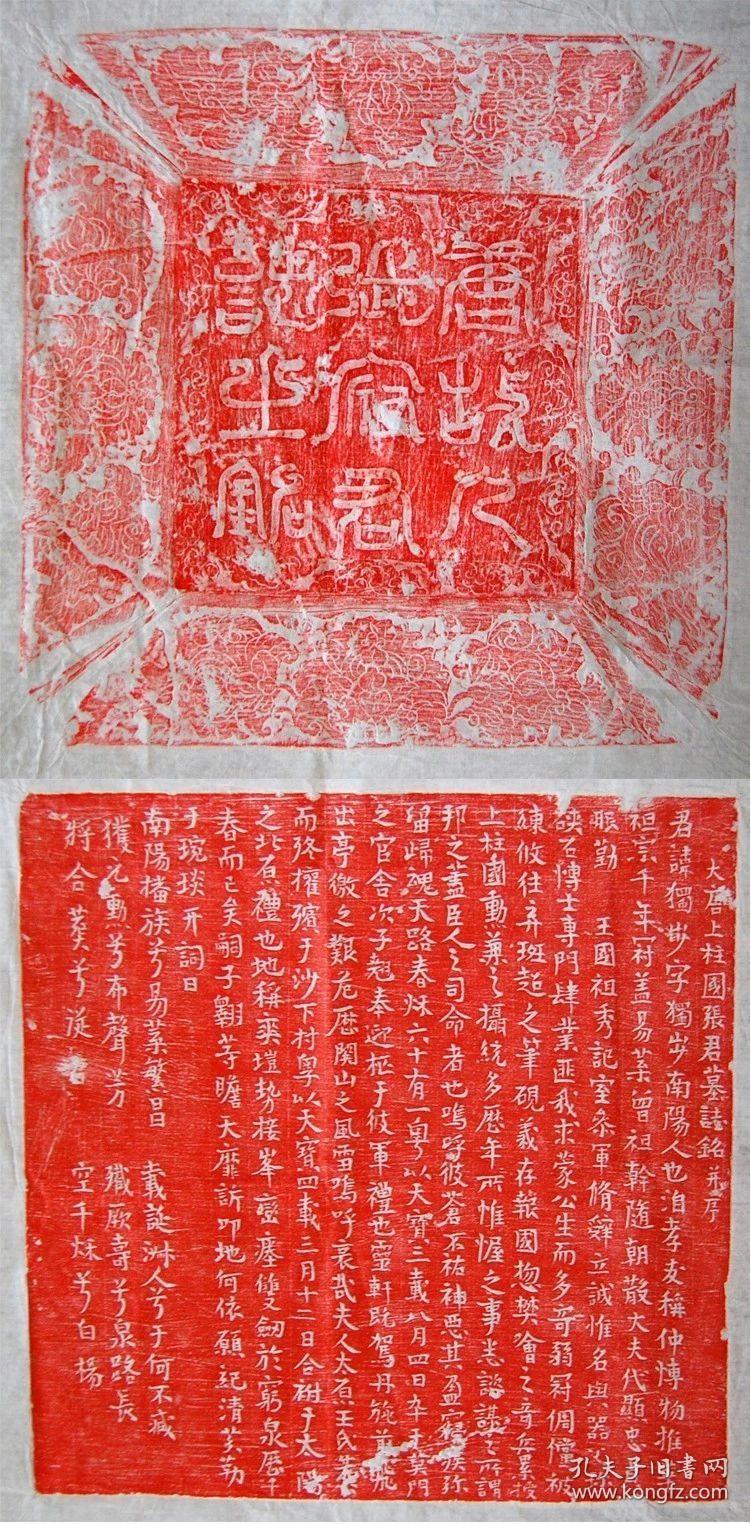 唐故人
張府君
誌之銘
大唐上柱國張君墓誌銘并序
君諱獨步字獨步南陽人也洎孝友稱仲博物推
祖宗千年冠盖易葉曾祖幹隨朝散大夫代顯忠
賑勤 王國祖秀記室叅軍脩辤立誠惟名與器
硤石博士專門肆業匪我求蒙公生而多奇弱冠倜儻被
練攸往弃班超之筆硯義存報國惣樊噲之奇兵累授
上柱國勳兼之攝統多歷年所惟幄之事悉諮謀之所謂
邦之盡臣人之司命者也嗚呼彼蒼不祐神惡其盈寢疾弥
留歸魂天路春秋六十有一粤以天寶三載八月四日卒于薊門
之官舍次子翹奉迎柩于彼軍禮也靈軒既駕丹旐前飛
出亭徼之艱危歷関山之風雪嗚呼哀哉夫人太原王氏
而終權殯于沙下村粤以天寶四載三月十二日合祔于太陽
之北原禮也地稱爽塏勢接峯巒瘞雙劒於窮泉歷千
春而已矣嗣子翽等瞻天靡訴叩地何依願紀清芬勒
于琬琰乃詞曰
南陽播族兮易葉繁昌 載誕淋人兮于何不臧
獲元勳兮布聲芳 殲厥壽兮泉路長
將合葬兮從 空千秋兮白楊
孔夫子旧書网
www.kongfz.com